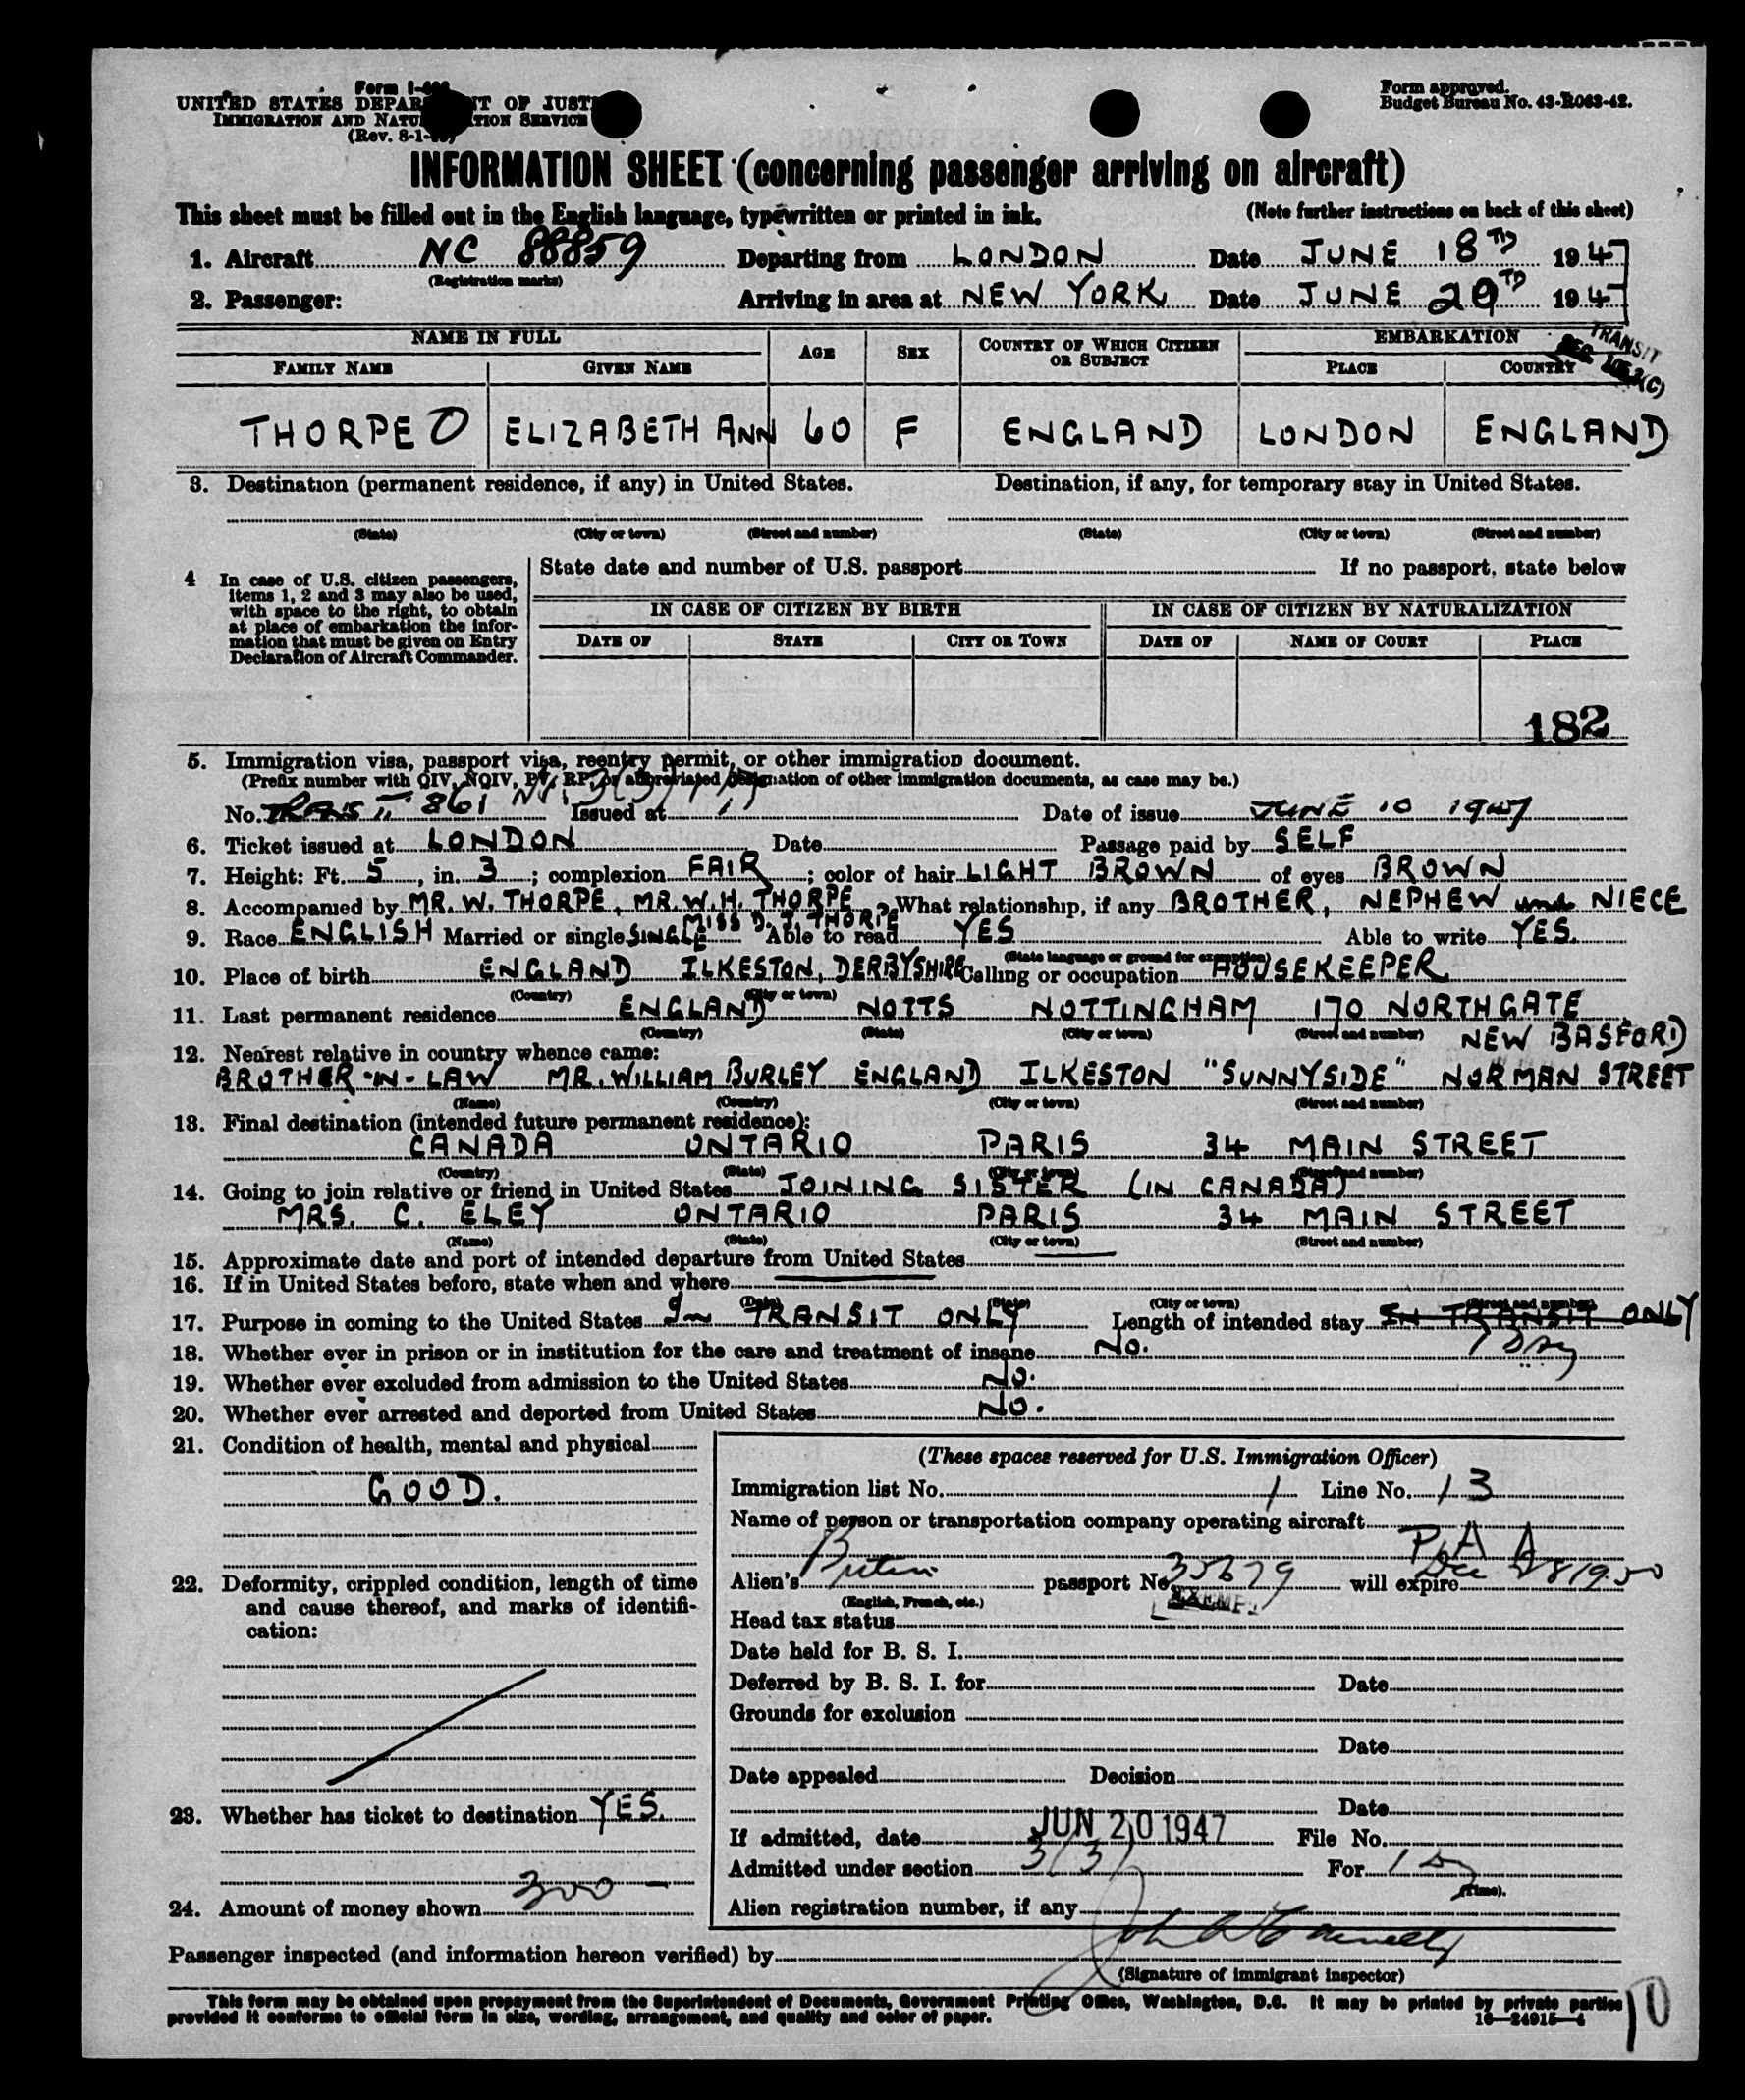 Form I-
UNITED STATES DEPAR NT OF JUST
IMMIGRATION AND NATU TION SERVICE
(Rev. 8-1-
Form approved.
Budget Bureau No. 43-R063-42.
INFORMATION SHEET (concerning passenger arriving on aircraft)
This sheet must be filled out in the English language, typewritten or printed in ink.
(Note further instructions on back of this sheet)
1. Aircraft NC 88859 Departing from LONDON Date JUNE 18TH 1947
(Registration marks)
2. Passenger: Arriving in area at NEW YORK Date JUNE 20TH 1947
TRANSIT
NAME IN FULL AGE SEX COUNTRY OF WHICH CITIZEN OR SUBJECT EMBARKATION
FAMILY NAME GIVEN NAME PLACE COUNTRY
THORPE ELIZABETH ANN 60 F ENGLAND LONDON ENGLAND
3. Destination (permanent residence, if any) in United States. Destination, if any, for temporary stay in United States.
(State) (City or town) (Street and number) (State) (City or town) (Street and number)
4 In case of U.S. citizen passengers, items 1, 2 and 3 may also be used, with space to the right, to obtain at place of embarkation the information that must be given on Entry Declaration of Aircraft Commander.
State date and number of U.S. passport If no passport, state below
IN CASE OF CITIZEN BY BIRTH IN CASE OF CITIZEN BY NATURALIZATION
DATE OF STATE CITY OR TOWN DATE OF NAME OF COURT PLACE
182
5. Immigration visa, passport visa, reentry permit, or other immigration document.
(Prefix number with QIV, NQIV, PV, RP, or abbreviated designation of other immigration documents, as case may be.)
No. TRANSIT 861 Issued at Date of issue JUNE 10 1947
6. Ticket issued at LONDON Date Passage paid by SELF
7. Height: Ft. 5, in. 3; complexion FAIR; color of hair LIGHT BROWN of eyes BROWN
8. Accompanied by MR. W. THORPE, MR. W. H. THORPE, What relationship, if any BROTHER, NEPHEW and NIECE
MISS D. J. THORPE
9. Race ENGLISH Married or single SINGLE Able to read YES Able to write YES.
(State language or ground for exemption)
10. Place of birth ENGLAND ILKESTON, DERBYSHIRE Calling or occupation HOUSEKEEPER
(Country) (City or town)
11. Last permanent residence ENGLAND NOTTS NOTTINGHAM 170 NORTHGATE
(Country) (State) (City or town) (Street and number) NEW BASFORD
12. Nearest relative in country whence came:
BROTHER-IN-LAW MR. WILLIAM BURLEY ENGLAND ILKESTON "SUNNYSIDE" NORMAN STREET
(Name) (Country) (City or town) (Street and number)
13. Final destination (intended future permanent residence):
CANADA ONTARIO PARIS 34 MAIN STREET
(Country) (State) (City or town) (Street and number)
14. Going to join relative or friend in United States JOINING SISTER (IN CANADA)
MRS. C. ELEY ONTARIO PARIS 34 MAIN STREET
(Name) (State) (City or town) (Street and number)
15. Approximate date and port of intended departure from United States
16. If in United States before, state when and where
(Date) (State) (City or town) (Street and number)
17. Purpose in coming to the United States In TRANSIT ONLY Length of intended stay IN TRANSIT ONLY
1 Day
18. Whether ever in prison or in institution for the care and treatment of insane No.
19. Whether ever excluded from admission to the United States No.
20. Whether ever arrested and deported from United States No.
21. Condition of health, mental and physical
GOOD.
22. Deformity, crippled condition, length of time and cause thereof, and marks of identification:
23. Whether has ticket to destination YES.
24. Amount of money shown 300 -
(These spaces reserved for U.S. Immigration Officer)
Immigration list No. 1 Line No. 13
Name of person or transportation company operating aircraft
P A A
Alien's passport No. 35679 will expire Dec 28 1950
(English, French, etc.)
EXEMPT
Head tax status
Date held for B. S. I.
Deferred by B. S. I. for Date
Grounds for exclusion
Date
Date appealed Decision
Date
If admitted, date JUN 20 1947 File No.
Admitted under section 3(3) For 1 Day
(Time).
Alien registration number, if any
Passenger inspected (and information hereon verified) by
(Signature of immigrant inspector)
This form may be obtained upon prepayment from the Superintendent of Documents, Government Printing Office, Washington, D.C. It may be printed by private parties
provided it conforms to official form in size, wording, arrangement, and quality and color of paper. 16—24915—4
10